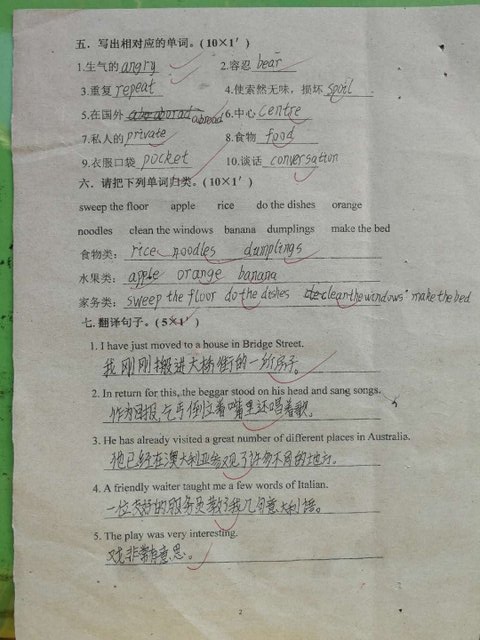 五．写出相对应的单词。（10×1′）
1.生气的 angry 2.容忍 bear
3.重复 repeat 4.使索然无味，损坏 spoil
5.在国外 abroad 6.中心 centre
7.私人的 private 8.食物 food
9.衣服口袋 pocket 10.谈话 conversation
六．请把下列单词归类。（10×1′）
sweep the floor apple rice do the dishes orange
noodles clean the windows banana dumplings make the bed
食物类： rice noodles dumplings
水果类： apple orange banana
家务类： sweep the floor do the dishes clean the windows make the bed
七.翻译句子。（5×1′）
1. I have just moved to a house in Bridge Street.
我刚刚搬进大桥街的一所房子。
2. In return for this, the beggar stood on his head and sang songs.
作为回报,乞丐倒立着嘴里还唱着歌。
3. He has already visited a great number of different places in Australia.
他已经在澳大利亚参观了许多不同的地方。
4. A friendly waiter taught me a few words of Italian.
一位友好的服务员教了我几句意大利语。
5. The play was very interesting.
戏非常有意思。
2